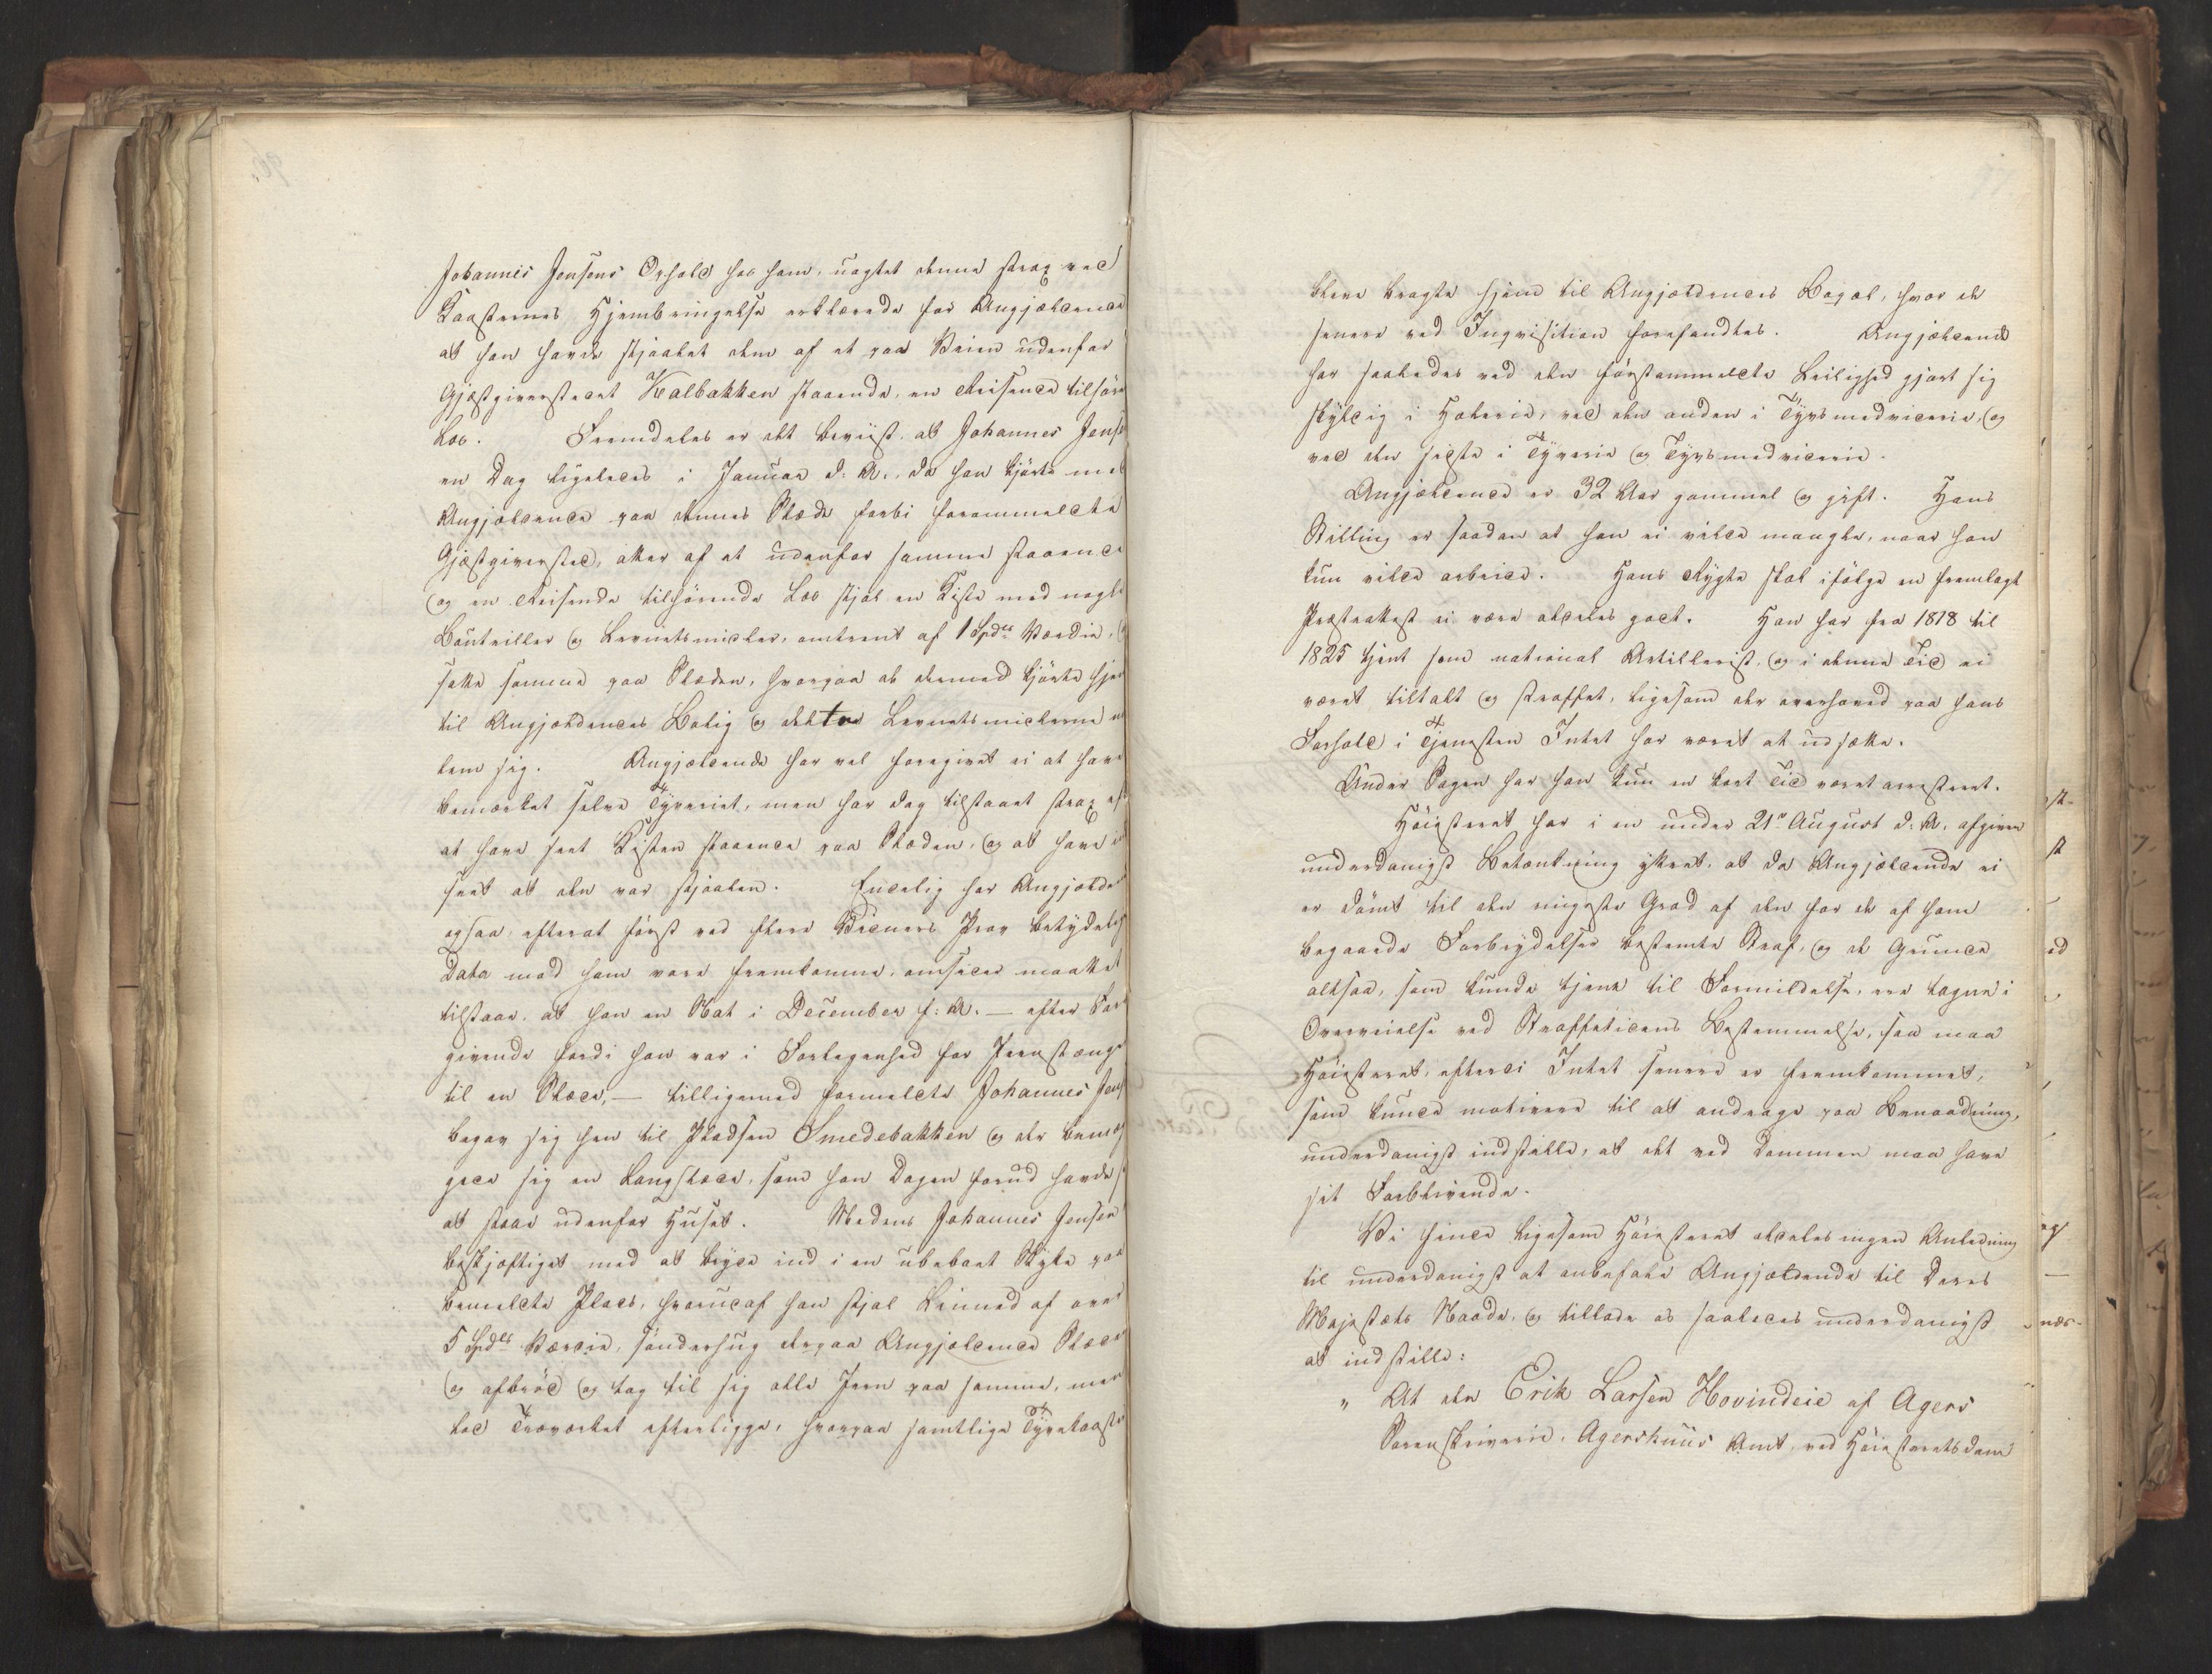 Johannes Jensens Ophold hos ham, uagtet denne strax ved
Kaasternes Hjembringelse erklærede for Angjældende
at han havde stjaalet dem af et paa Veien udenfor
Gjæstgiverstedet Kalbakken staaende, en Reisende tilhøre
Læs. Fremdeles er det beviist, at Johannes Jense
en Dag ligeledes i Januar d: A., da han kjørte med
Angjældende paa dennes Slæde forbi forommeldte
Gjæstgiversted, aller af et udenfor samme staaende
og en Reisende tilhørende Læs stjal en Kiste med nogle
Bouteiller og Levnetsmidler, omtrent af 1 Spds Værdie,
satte samme paa Slæden, hvorpaa de dermed kjørte hjem
til Angjældendes Bolig og deelte Levnetsmidlerne m
lem sig. Angjældende har vel foregivet ei at have
bemærket selve Tyveriet, men har dog tilstaaet strax ef
at have seet Kisten staaende paa Slæden, og at have
seet at den var stjaalen. Endelig har Angjælden
ogsaa, efterat først ved flere Vidners Prov betydelig
Data mod ham vare fremkomne, omsider maattet
tilstaae, at han en Nat i December f: A. — efter For
givende fordi han var i Forlegenhed for Jernstænge
til en Slæde, — tilligemed formeldte Johannes Jens
begav sig hen til Pladsen Smedebakken og der bemæg
gede sig en Langslæde, som han Dagen forud havde s
at staae udenfor Huset. Medens Johannes Jensen
beskjæftiget med at bryde ind i en ubeboet Stue paa
bemeldte Plads, hvorudaf han stjal Leined af over
5 Spds Værdie, sønderhug derpaa Angjældende Slæden
og afbrød og tog til sig alle Jern paa samme, men
lod Træværket efterligge, hvorpaa samtlige Tyvekoste
bleve bragte hjem til Angjældendes Bopæl, hvor de
senere ved Inqvisition forefandtes. Angjældende
har saaledes ved den førstommeldte Leilighed gjort sig
skyldig i Hæleri, ved den anden i Tyvsmedvideri, og
ved den sidste i Tyveri og Tyvsmedvideri.
Angjældende er 32 Aar gammel og gift. Hans
Stilling er saadan at han ei vilde mangle, naar han
kun vilde arbeide. Hans Rygte skal ifølge en fremlagt
Præsteattest ei være aldeles godt. Han har fra 1818 til
1825 tjent som national Artillerist, og i denne Tid ei
været tiltalt og straffet, ligesom der overhoved paa hans
Forhold i Tjenesten Intet har været at udsætte.
Under Sagen har han kun en kort Tid været arresteret.
Høiesteret har i en under 21de August d: A. afgiven
underdanigst Betænkning yttret, at da Angjældende ei
er dømt til den ringeste Grad af den for de af ham
begaaede Forbrydelser bestemte Straf, og de Grunde
altsaa, som kunde tjene til Formildelse, ere tagne i
Overveielse ved Straffetidens Bestemmelse, saa maa
Høiesteret, efterdi Intet senere er fremkommet,
som kunde motivere til at andrage paa Benaadning,
underdanigst indstille, at det ved Dommen maa have
sit Forblivende.
Vi finde ligesom Høiesteret aldeles ingen Anledning
til underdanigst at anbefale Angjældende til Deres
Majestæts Naade, og tillade os saaledes underdanigst
at indstille:
" At den Erik Larsen Hovindeie af Agers
Sorenskriverie, Agershuus Amt, ved Høiesteretsdom